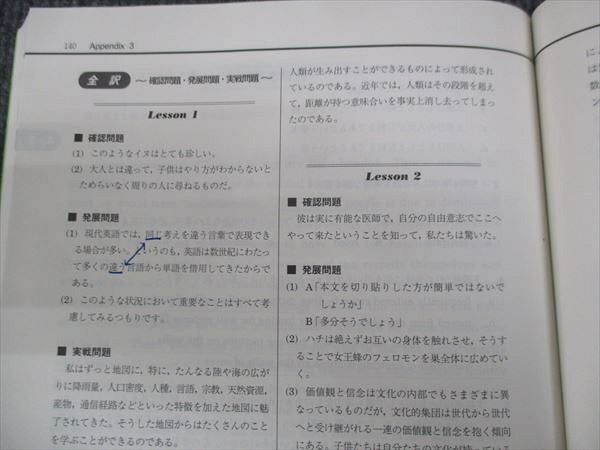 140 Appendix 3
全 訳 ～確認問題・発展問題・実戦問題～
Lesson 1
■ 確認問題
(1) このようなイヌはとても珍しい。
(2) 大人とは違って，子供はやり方がわからないと
ためらいなく周りの人に尋ねるものだ。
■ 発展問題
(1) 現代英語では，同じ考えを違う言葉で表現でき
る場合が多い。というのも，英語は数世紀にわたっ
て多くの違う言語から単語を借用してきたからで
ある。
(2) このような状況において重要なことはすべて考
慮してみるつもりです。
■ 実戦問題
私はずっと地図に，特に，たんなる陸や海の広が
りに降雨量，人口密度，人種，言語，宗教，天然資源，
産物，通信経路などといった特徴を加えた地図に魅
了されてきた。そうした地図からはたくさんのこと
を学ぶことができるのである。
人類が生み出すことができるものによって形成され
ているのである。近年では，人類はその段階を超え
て，距離が持つ意味合いを事実上消し去ってしまっ
たのである。
Lesson 2
■ 確認問題
彼は実に有能な医師で，自分の自由意志でここへ
やって来たということを知って，私たちは驚いた。
■ 発展問題
(1) A「本文を切り貼りした方が簡単ではないで
しょうか」
B「多分そうでしょう」
(2) ハチは絶えずお互いの身体を触れさせ，そうす
ることで女王蜂のフェロモンを巣全体に広めてい
く。
(3) 価値観と信念は文化の内部でもさまざまに異
なっているものだが，文化的集団は世代から世代
へと受け継がれる一連の価値観と信念を抱く傾向
にある。子供たちは自分たちの文化が持っ
に
は
数
ン